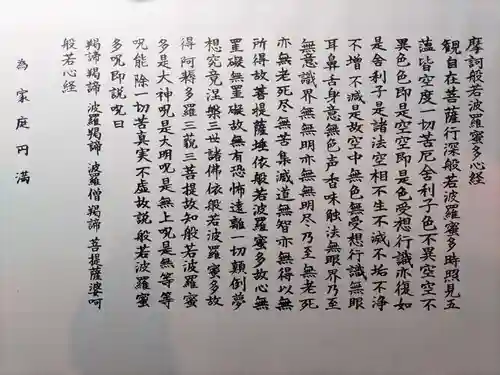 摩訶般若波羅蜜多心経
観自在菩薩行深般若波羅蜜多時照見五
蘊皆空度一切苦厄舎利子色不異空空不
異色色即是空空即是色受想行識亦復如
是舎利子是諸法空相不生不滅不垢不浄
不増不減是故空中無色無受想行識無眼
耳鼻舌身意無色声香味触法無眼界乃至
無意識界無無明亦無無明尽乃至無老死
亦無老死尽無苦集滅道無智亦無得以無
所得故菩提薩埵依般若波羅蜜多故心無
罣礙無罣礙故無有恐怖遠離一切顛倒夢
想究竟涅槃三世諸佛依般若波羅蜜多故
得阿耨多羅三藐三菩提故知般若波羅蜜
多是大神呪是大明呪是無上呪是無等等
呪能除一切苦真実不虚故説般若波羅蜜
多呪即説呪曰
羯諦羯諦 波羅羯諦 波羅僧羯諦 菩提薩婆呵
般若心経
為家庭円満